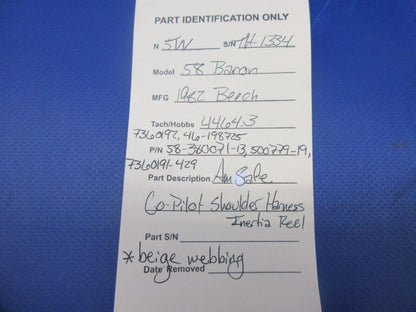 PART IDENTIFICATION ONLY
N 5W S/N TH-1334
Model 58 Baron
MFG 1982 Beech
Tach/Hobbs 4464.3
7360192, 46-198725
P/N 58-380071-13, 500779-19,
7360191-429
Part Description Am Safe
Co-Pilot Shoulder Harness
Inertia Reel
Part S/N
* beige webbing
Date Removed